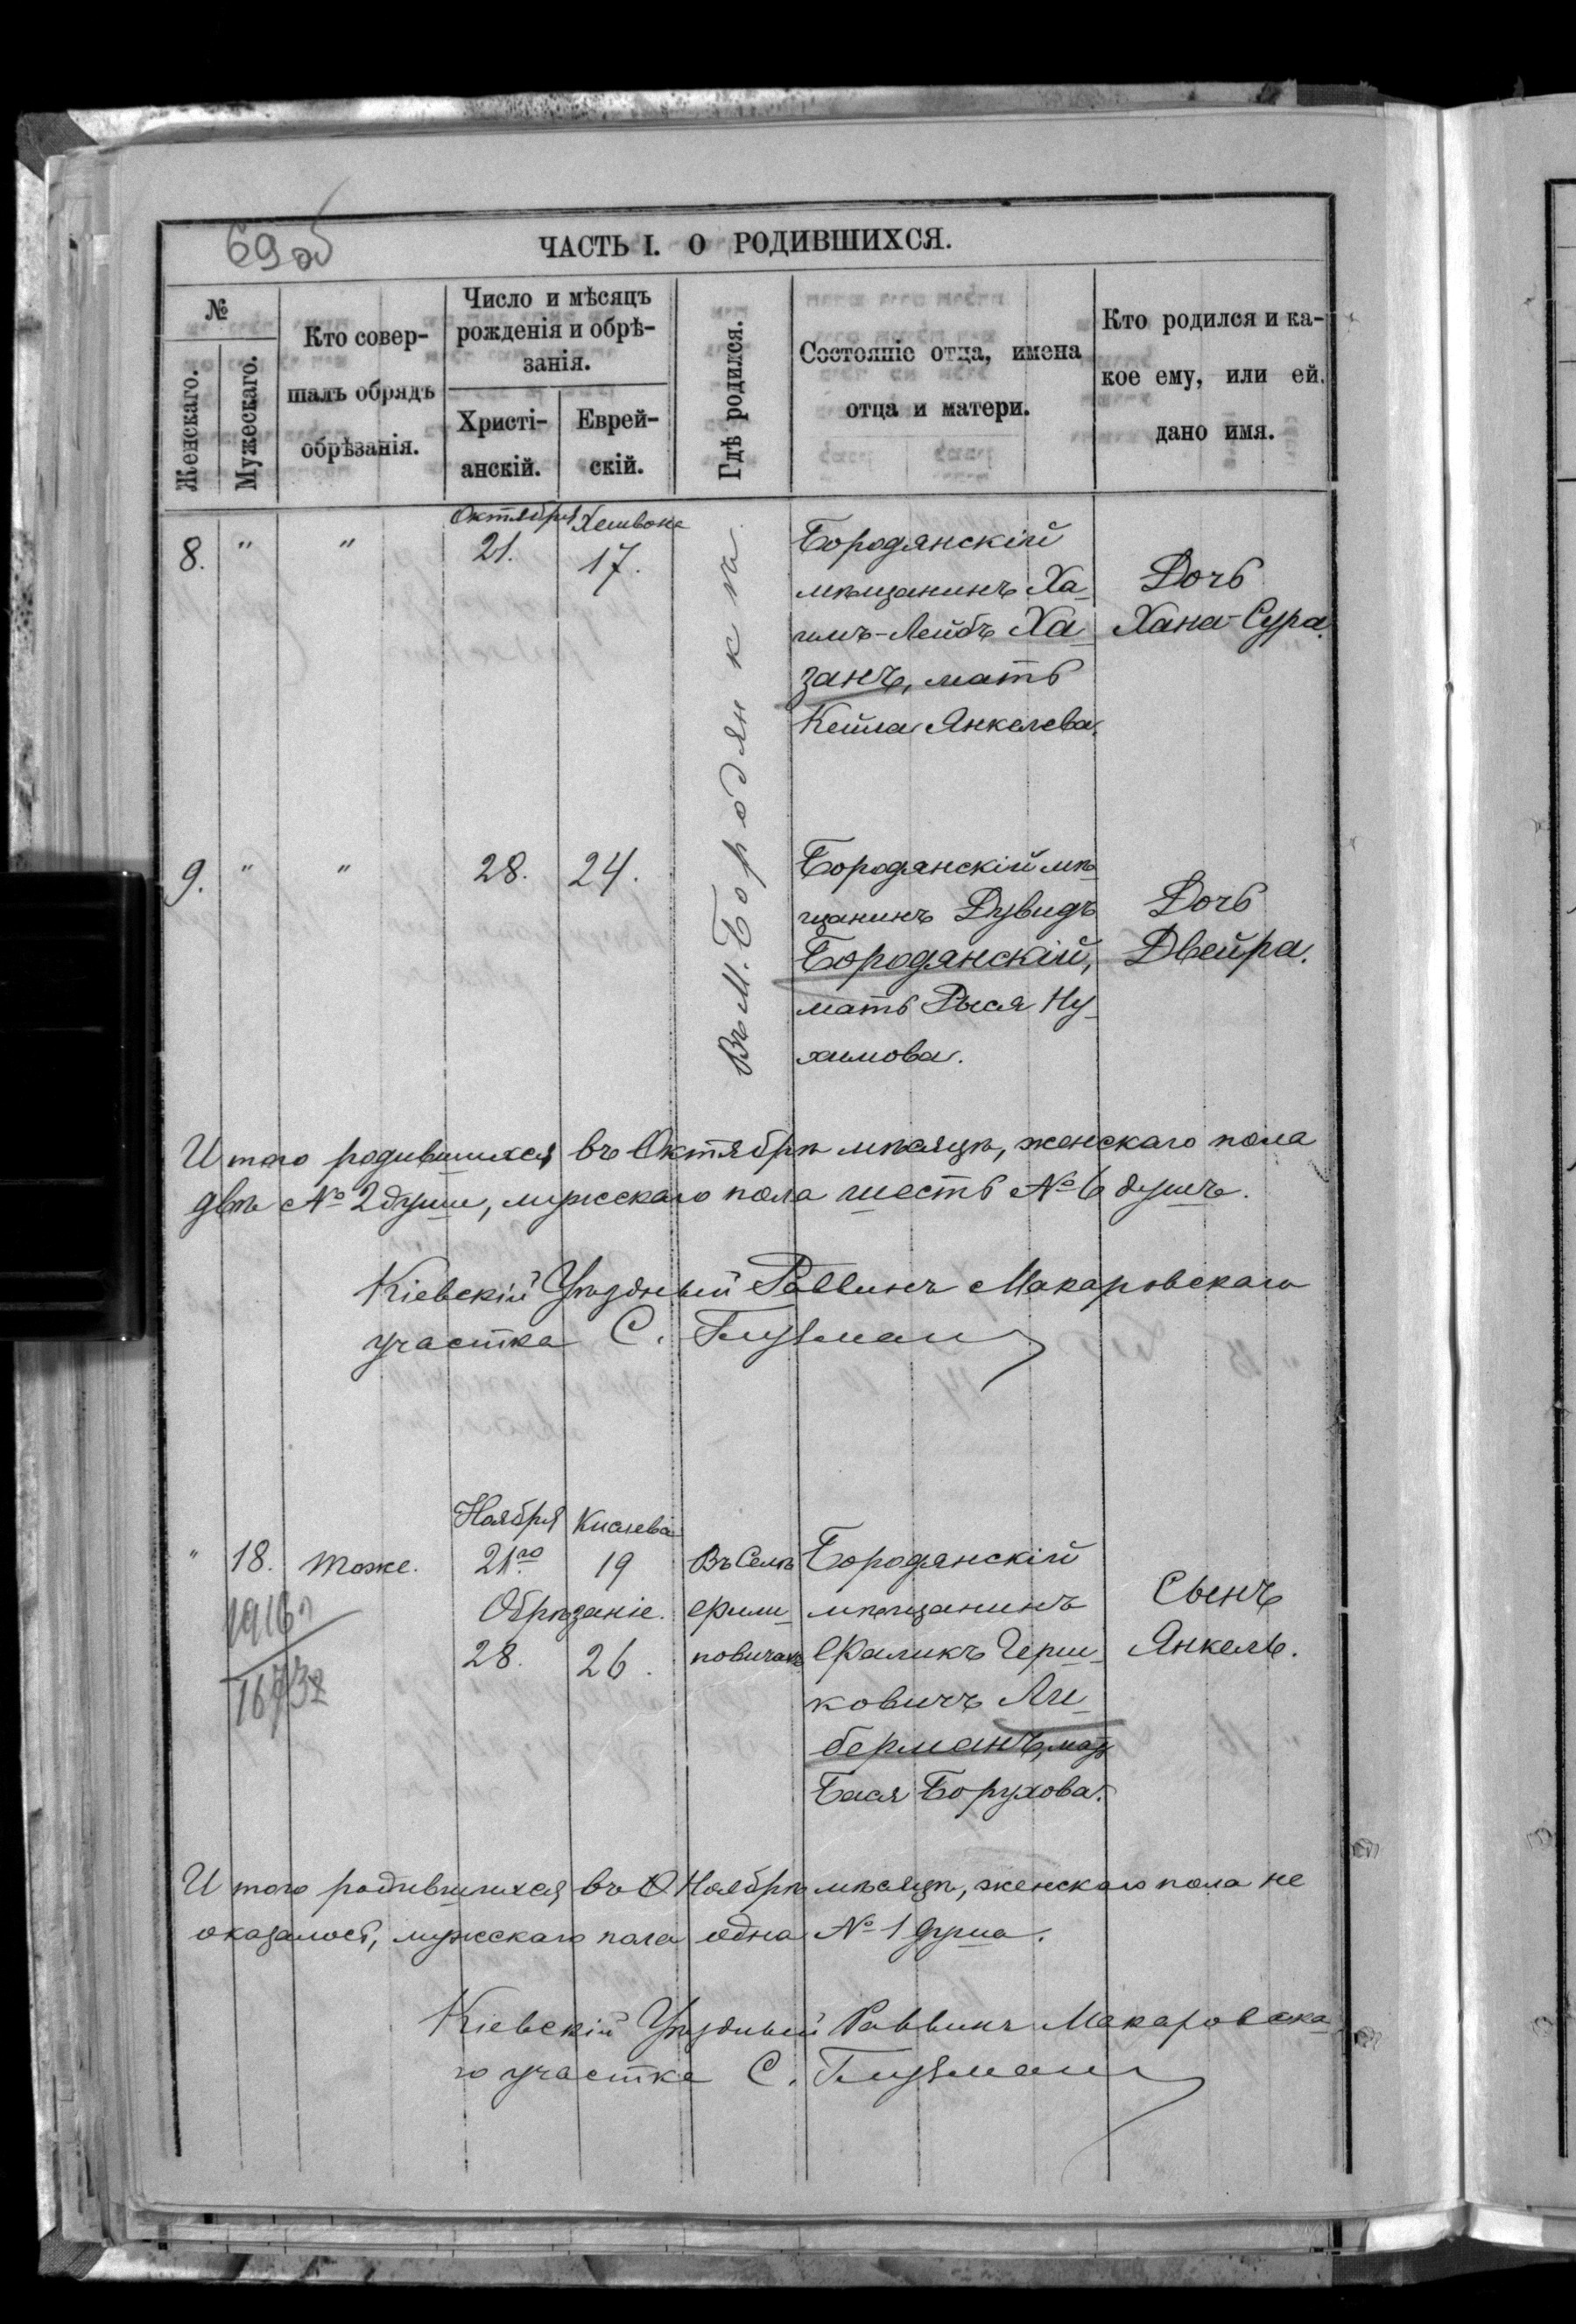 69 об
ЧАСТЬ I. О РОДИВШИХСЯ.
№
Женскаго.
Мужескаго.
Кто совер-
шалъ обрядъ
обрѣзанія.
Число и мѣсяцъ
рожденія и обрѣ-
занія.
Христі-
анскій.
Еврей-
скій.
Гдѣ родился.
Состояніе отца, имена
отца и матери.
Кто родился и ка-
кое ему, или ей.
дано имя.
Октября Хешвона
8. " " 21. 17.
Въ М. Бородянкѣ
Бородянскій
мѣщанинъ Ха-
имъ-Лейбъ Ха-
занъ, мать
Кейла Янкелева.
Дочь
Хана-Сура.
9. " " 28. 24.
Бородянскій мѣ-
щанинъ Дувидъ
Бородянскій,
мать Рыся Ну-
химова.
Дочь
Двейра.
Итого родившихся въ Октябрѣ мѣсяцѣ, женскаго пола
двѣ № 2 души, мужскаго пола шесть № 6 душъ.
Кіевскій Уѣздный Раввинъ Макаровскаго
участка С. Глузман
Ноября Кислева
" 18. Тоже. 21го 19
Обрѣзаніе.
28. 26.
1916
Въ Селѣ
Фили-
повичахъ
Бородянскій
мѣщанинъ
Фаликъ Герш-
ковичъ Ли-
берманъ, мать
Бася Борухова.
Сынъ
Янкель.
Итого родившихся въ Ноябрѣ мѣсяцѣ, женскаго пола не
оказалось, мужскаго пола одна № 1 душа.
Кіевскій Уѣздный Раввинъ Макаровска-
го участка С. Глузман